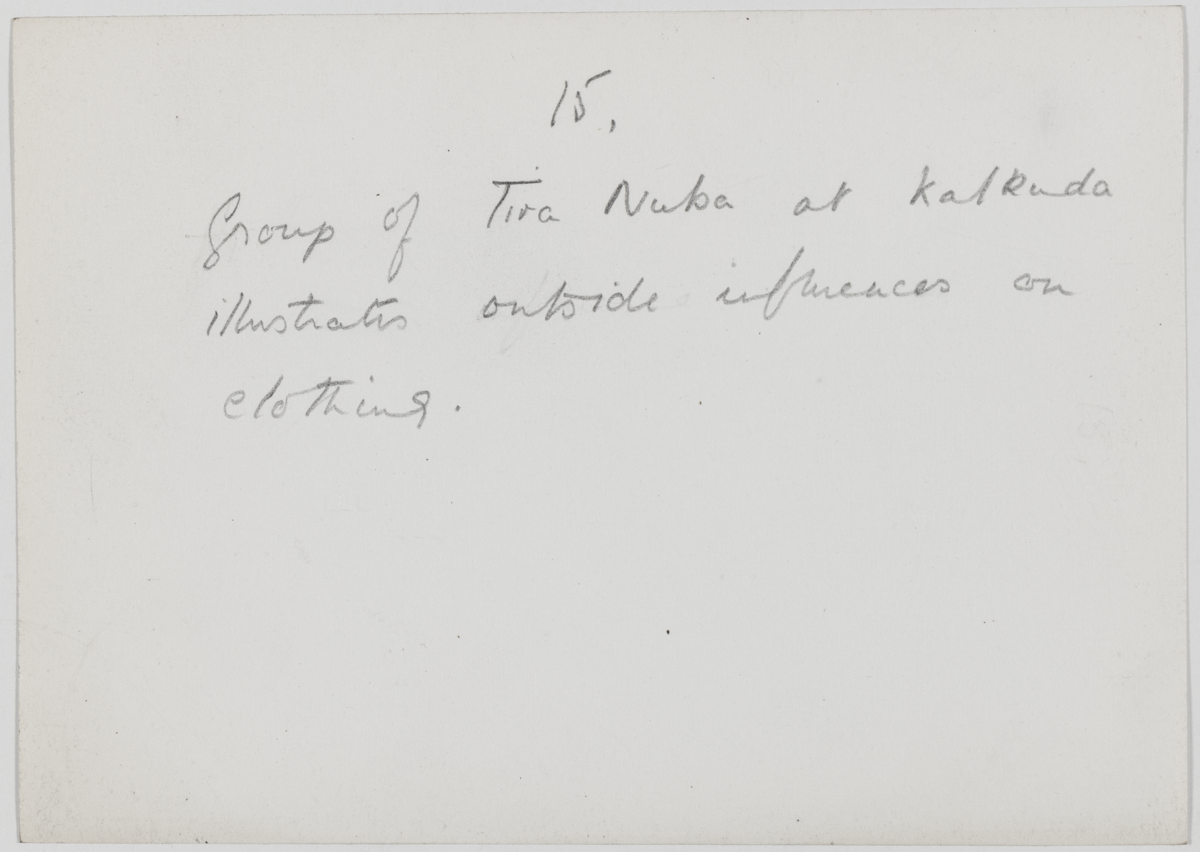 15.
Group of Tira Nuba at Kalkuda
illustrates outside influences on
clothing.